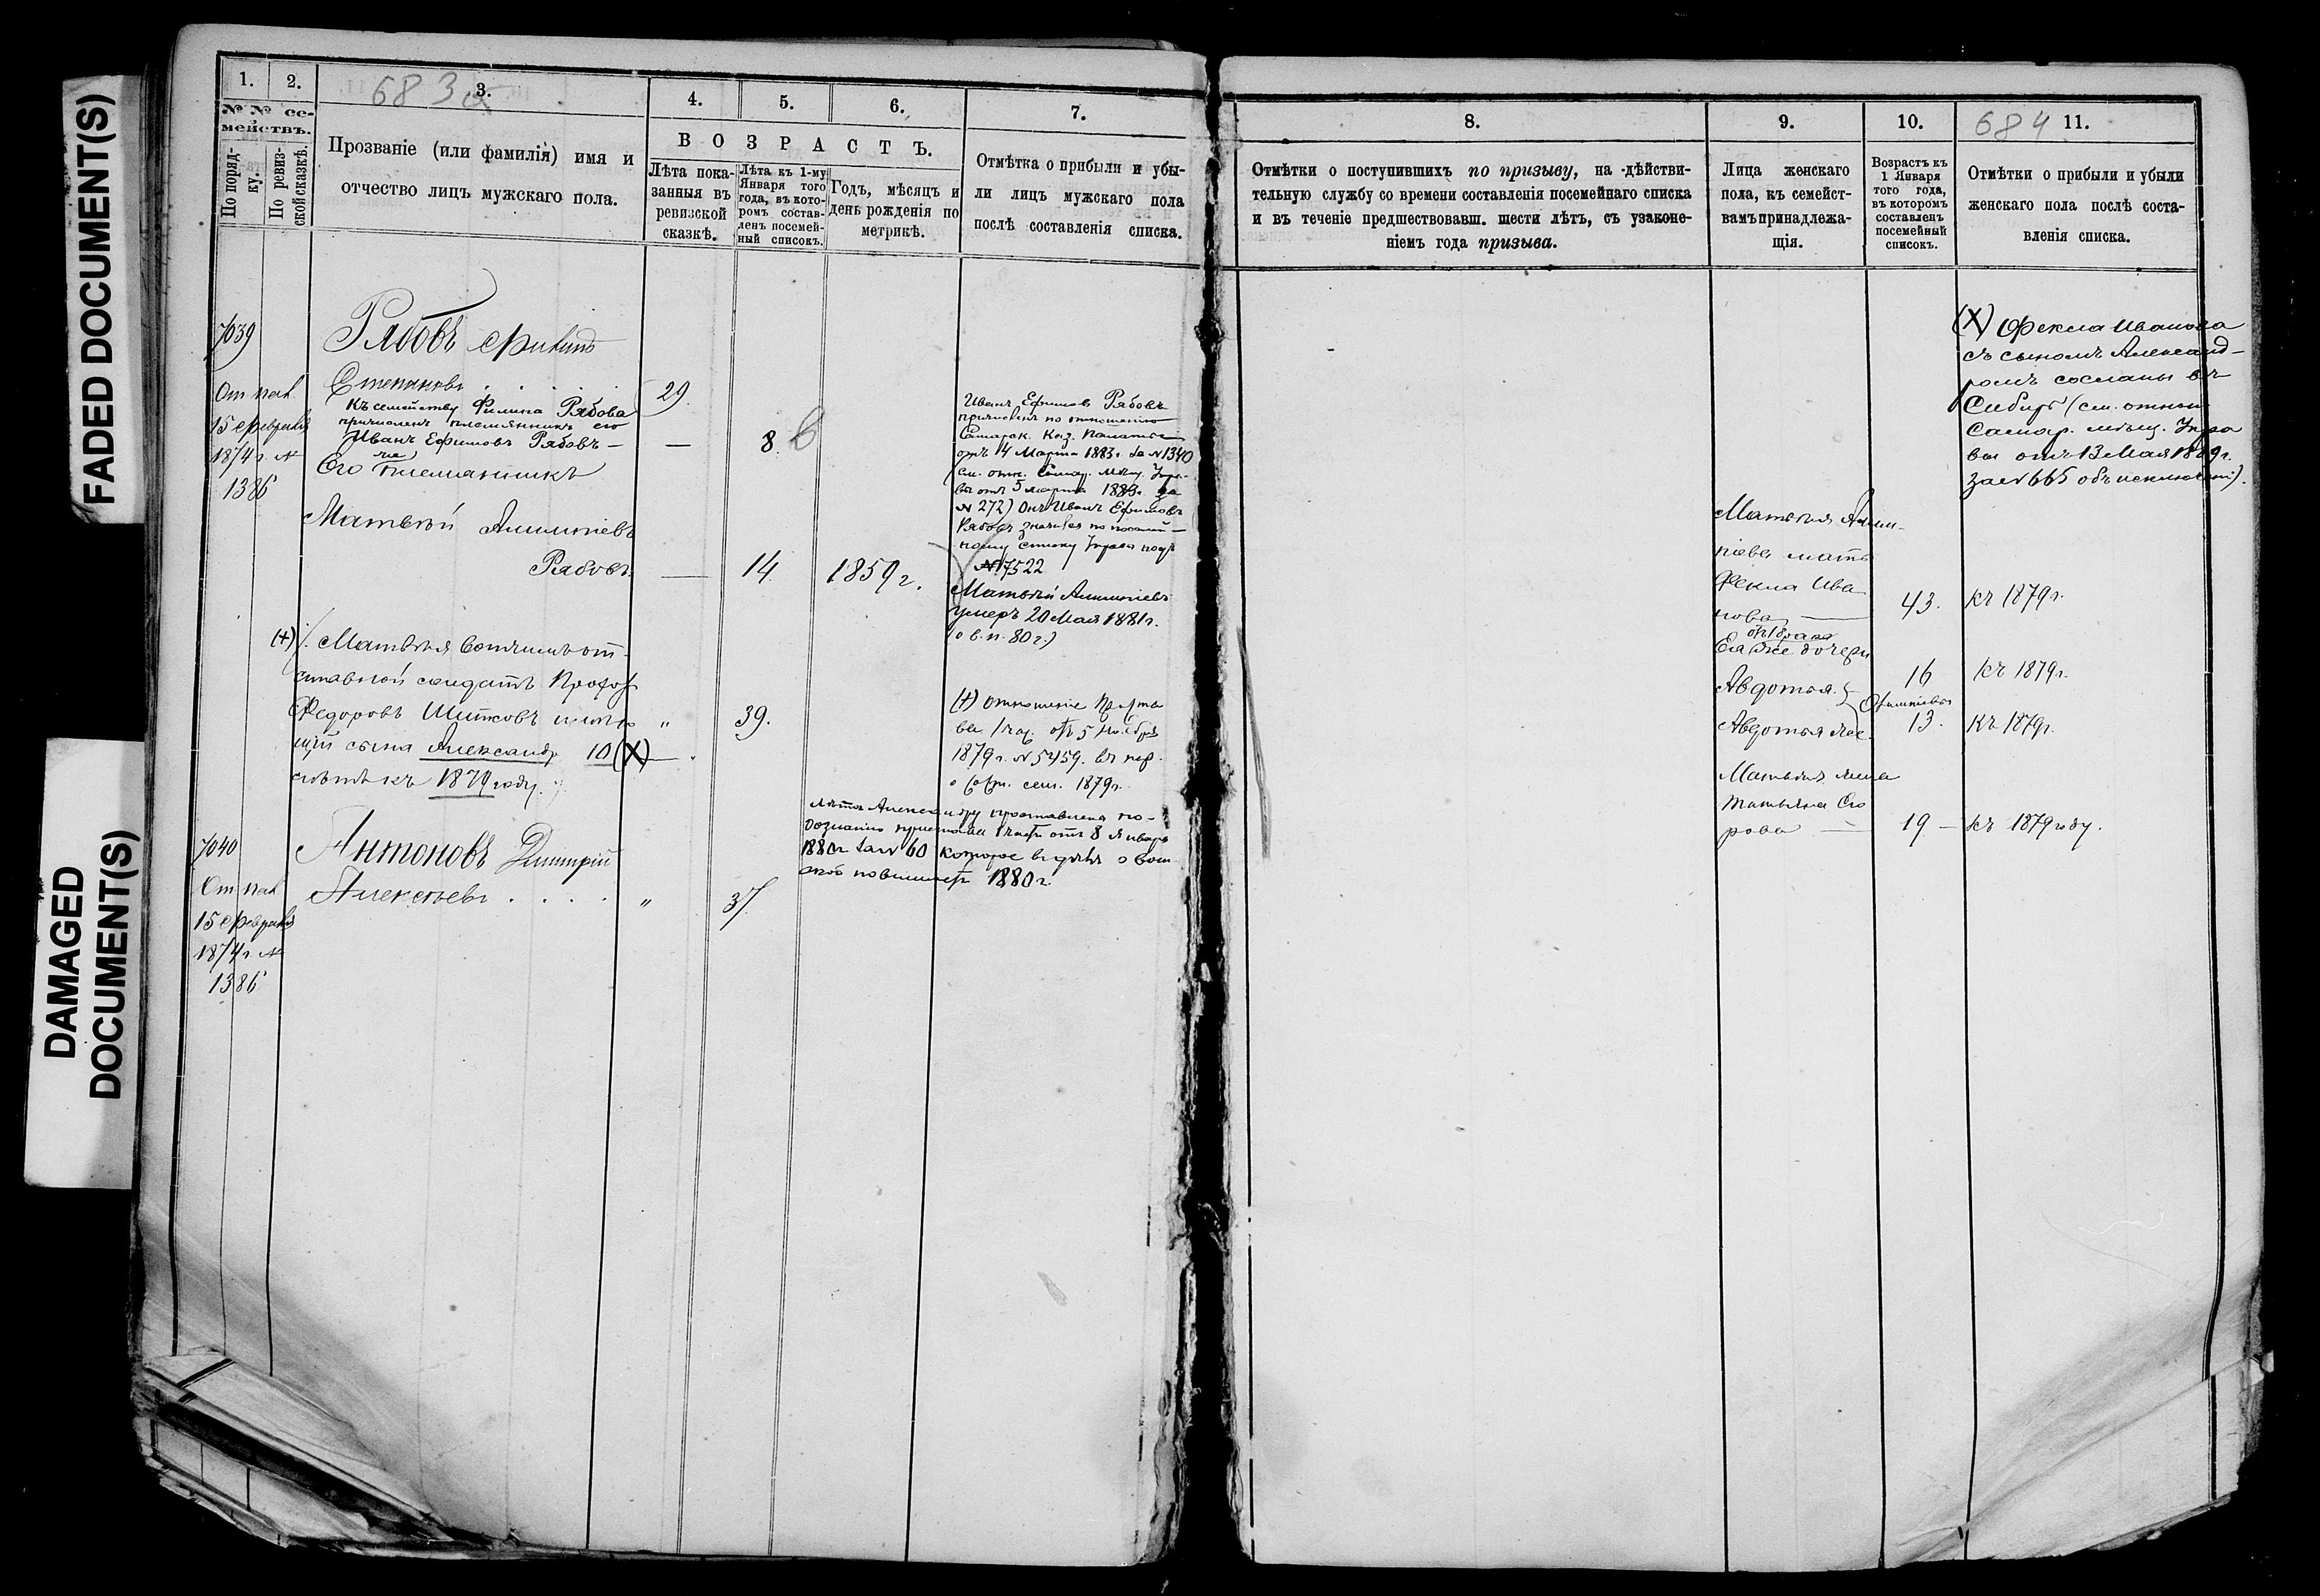 FADED DOCUMENT(S)
DAMAGED
DOCUMENT(S)
683
1.
2.
3.
4.
5.
6.
7.
№ № се-
мействъ.
По поряд-
ку.
По ревиз-
ской сказкѣ.
Прозваніе (или фамилія) имя и
отчество лицъ мужскаго пола.
ВОЗРАСТЪ.
Лѣта пока-
занныя въ
ревизской
сказкѣ.
Лѣта къ 1-му
Января того
года, въ кото-
ромъ состав-
ленъ посемей-
ный списокъ.
Годъ, мѣсяцъ и
день рожденія по
метрикѣ.
Отмѣтка о прибыли и убы-
ли лицъ мужскаго пола
послѣ составленія списка.
7039
От
15 февраля
1874 г. №
1386
Рябовъ Филипъ
Степановъ
29.
Къ семейству Филипа Рябова
причисленъ племянникъ его
Иванъ Ефимовъ Рябовъ —
— 8.
Его племянникъ
Матвѣй
Рябовъ. — 14. 1859 г.
Иванъ Ефимовъ Рябовъ
причисленъ по отношенію
Самарск. Каз. Палаты
отъ 14 Марта 1883 г. за № 1340
(см. отн. Самар. Мѣщ. Упра-
вы отъ 5 марта 1883 г. за
№ 272) Онъ Иванъ Ефимовъ
Рябовъ значился по посемей-
ному списку Управы подъ
№ 7522
Матвѣй
умеръ 20 Мая 1881 г.
(о в. п. 80 г.)
(+) Матвѣя вотчимъ от-
ставной солдатъ
Федоровъ
„ 39.
сына Александр 10 (X) —
къ 1879 году.
(+) отношеніе
1 час. отъ 5 Ноября
1879 г. № 5459. въ
1879 г.
Лѣта Александру проставлены по
дознанію 1 части отъ 8 Января
1880 г. за № 60 которое въ дѣлѣ о воин-
ской повинности 1880 г.
7040
От
15 февраля
1874 г. №
1386
Антоновъ Дмитрій
Алексѣевъ . . . . „ 37.
8.
9.
10.
684 11.
Отмѣтки о поступившихъ по призыву, на дѣйстви-
тельную службу со времени составленія посемейнаго списка
и въ теченіе предшествовавш. шести лѣтъ, съ узаконе-
ніемъ года призыва.
Лица женскаго
пола, къ семейст-
вамъ принадлежа-
щія.
Возрастъ къ
1 Января
того года,
въ которомъ
составленъ
посемейный
списокъ.
Отмѣтки о прибыли и убыли
женскаго пола послѣ соста-
вленія списка.
(X) Фекла Иванова
съ сыномъ Александ-
ромъ сосланы въ
Сибирь (см. отнош.
Самар. мѣщ. Упра
вы отъ 13 Мая 1889 г.
за № 665 объ исключеніи).
Матвѣя
мать
Фекла Ива
нова — 43. къ 1879 г.
отъ 1 брака
Ея же дочери
Авдотья 16 къ 1879 г.
Авдотья 13. къ 1879 г.
Матвѣя жена
Татьяна Его
рова — 19 — къ 1879 году.